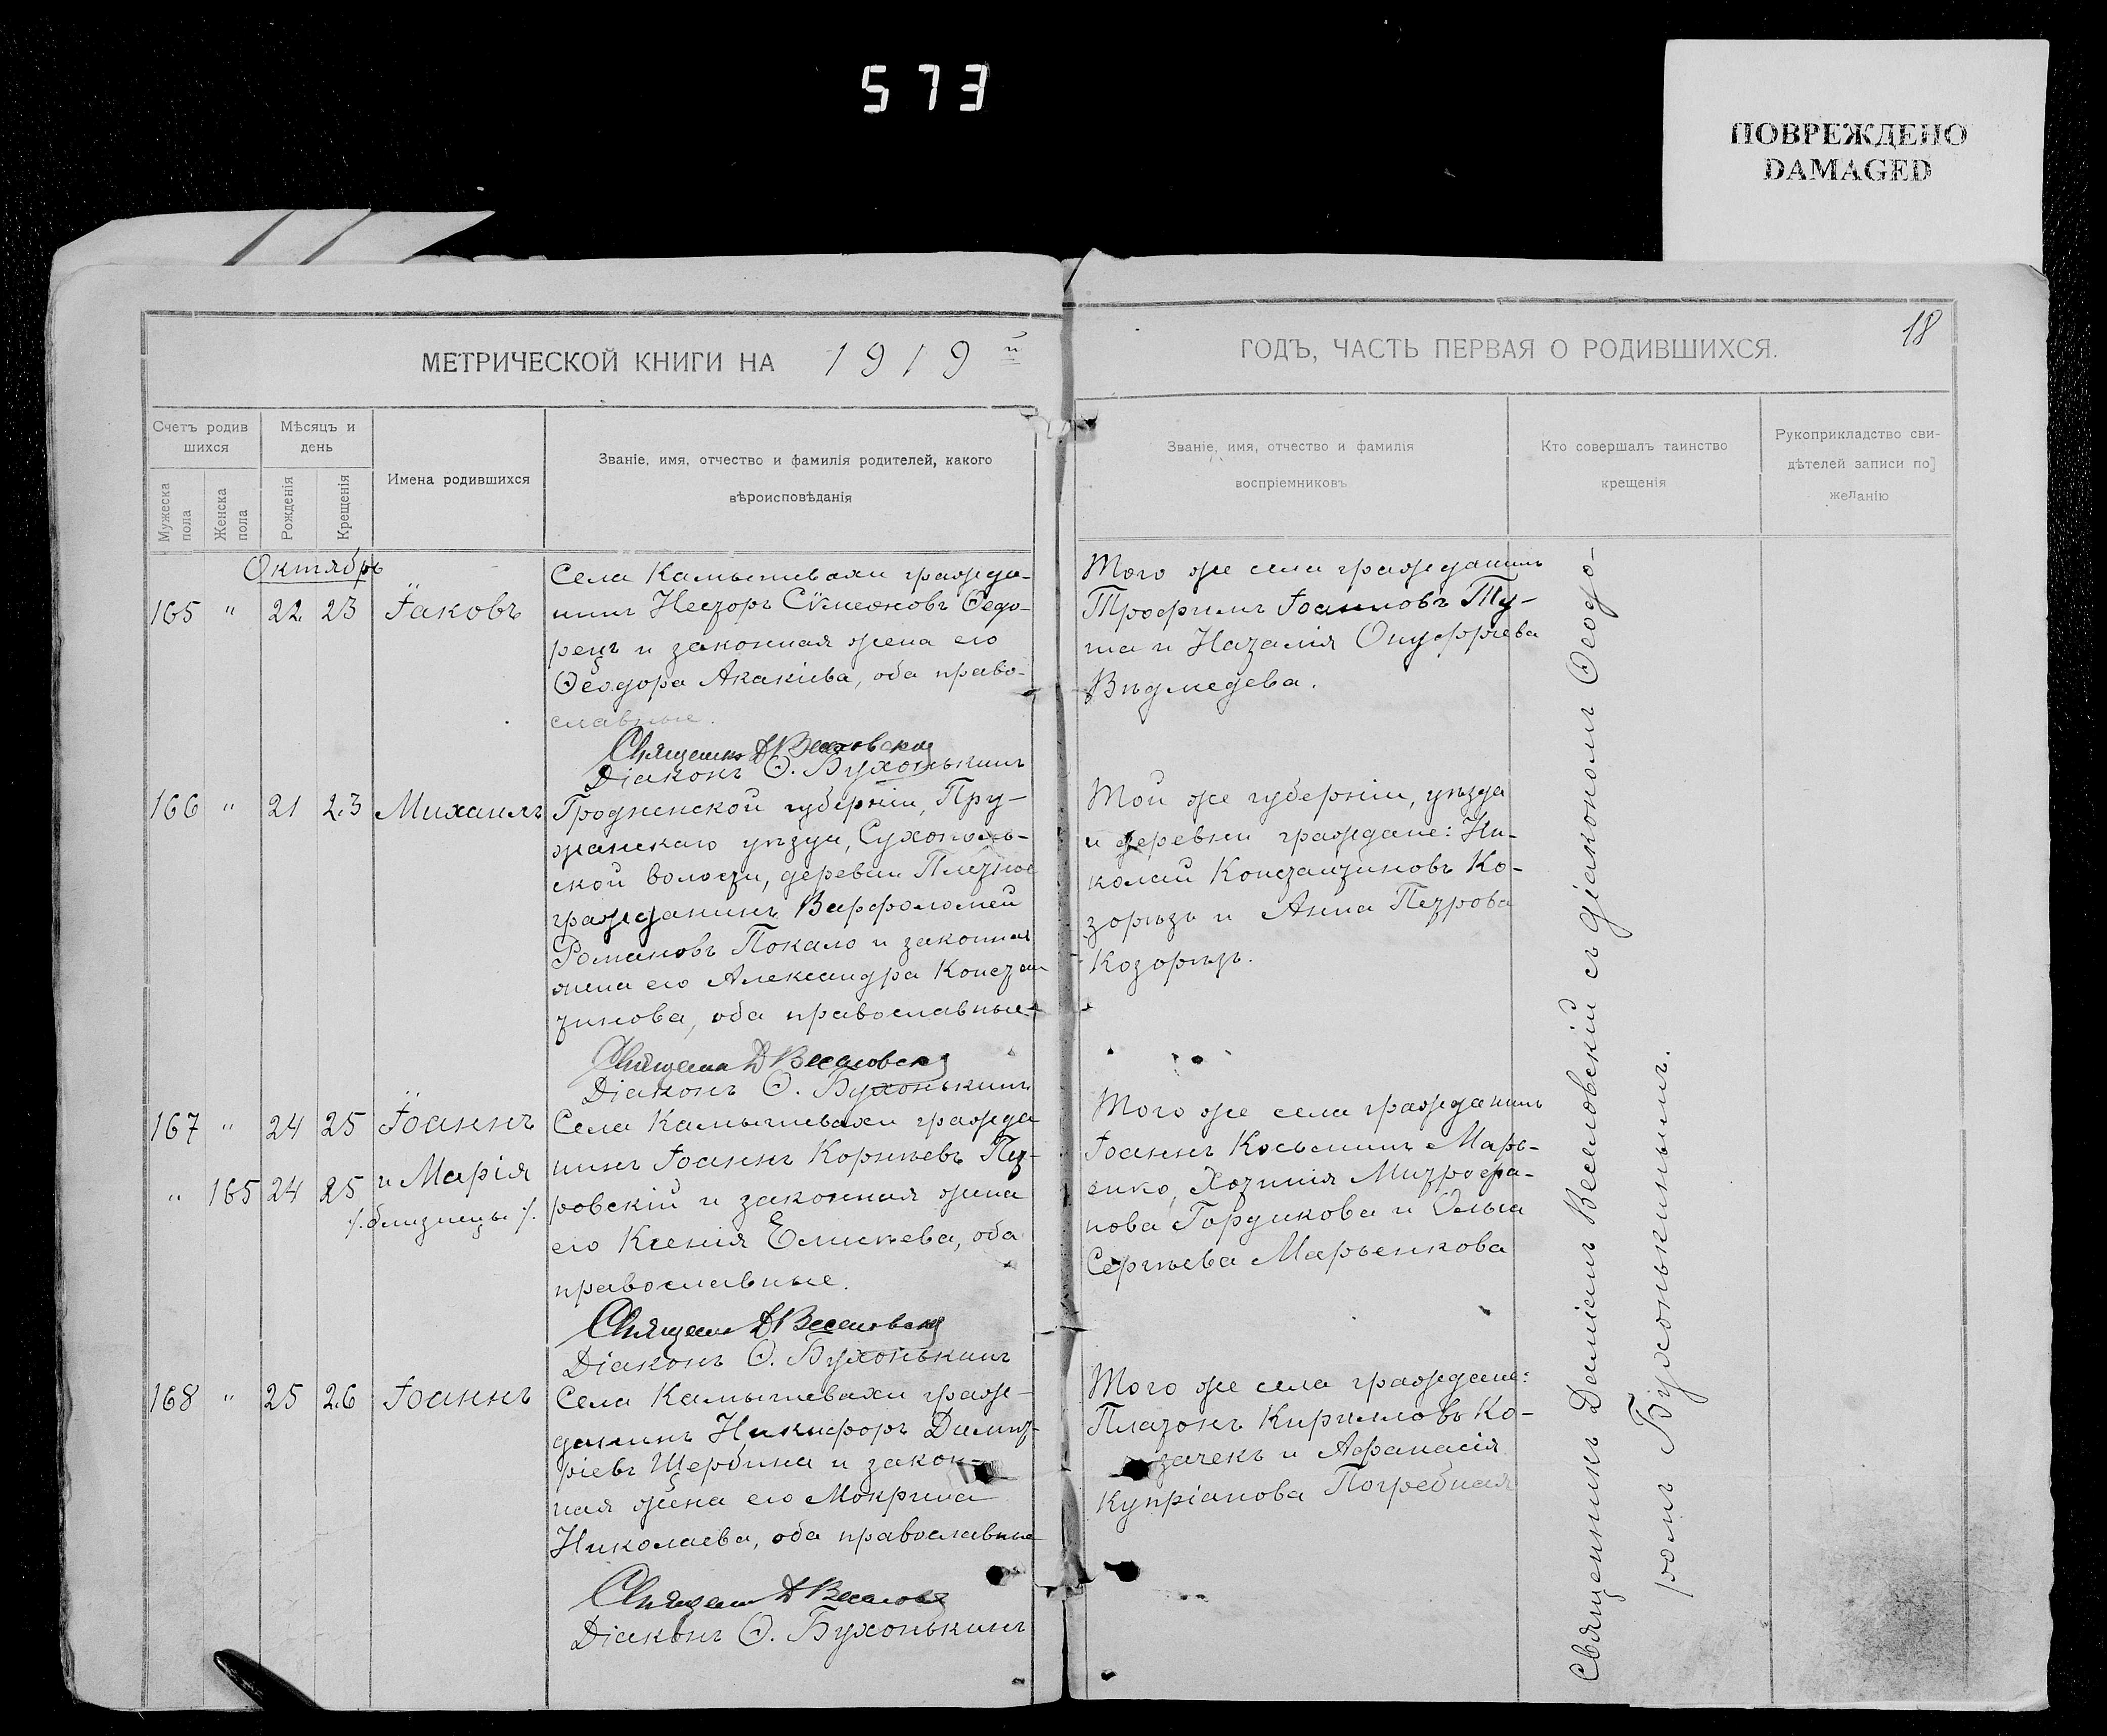 573
ПОВРЕЖДЕНО
DAMAGED
МЕТРИЧЕСКОЙ КНИГИ НА 1919й
ГОДЪ, ЧАСТЬ ПЕРВАЯ О РОДИВШИХСЯ.
18
Счетъ родив
шихся
Мужеска
пола
Женска
пола
Мѣсяцъ и
день
Рожденія
Крещенія
Имена родившихся
Званіе, имя, отчество и фамилія родителей, какого
вѣроисповѣданія
Званіе, имя, отчество и фамилія
воспріемниковъ
Кто совершалъ таинство
крещенія
Рукоприкладство сви-
дѣтелей записи по
желанію
Октябрь
165 " 22 23 Іаковъ
Села Камышевахи гражда-
нинъ Несторъ Сѵмеоновъ Ѳедо-
рецъ и законная жена его
Ѳеодора Акакіева, оба право-
славные.
Священникъ Д Веселовскій
Діаконъ Ѳ. Бухонькинъ
Того же села гражданинъ
Трофимъ Іоанновъ Ту-
та и Наталія Онуффріева
Вѣдмедева.
166 " 21 23 Михаилъ
Гродненской губерніи, Пру-
жанскаго уѣзда, Сухополь-
ской волости, деревни
гражданинъ Варфоломей
Романовъ Покало и законная
жена его Александра Констан
тинова, оба православные
Священникъ Д Веселовскій
Діаконъ Ѳ. Бухонькинъ
Той же губерніи, уѣзда
и деревни граждане: Ни-
колай Константиновъ Ко-
зорѣзъ и Анна Петрова
Козорѣзъ.
167 " 24 25 Іоаннъ
" 165 24 25 и Марія
/. близнецы ./.
Села Камышевахи гражда
нинъ Іоаннъ Корнѣевъ Пет-
ровскій и законная жена
его Ксенія Елисѣева, оба
православные.
Священникъ Д Веселовскій
Діаконъ Ѳ. Бухонькинъ
Того же села гражданинъ
Іоаннъ Косьминъ Марь-
енко, Хотинія Митрофа-
нова Гордикова и Ольга
Сергѣева Марьенкова
168 " 25 26 Іоаннъ
Села Камышевахи граж-
данинъ Никифоръ Димит-
ріевъ Щербина и закон-
ная жена его Мокрина
Николаева, оба православные
Священникъ Д Веселовскій
Діаконъ Ѳ. Бухонькинъ
Того же села граждане:
Платонъ Кирилловъ Ко-
зачекъ и Афанасія
Купріанова Погребная
Священникъ Даміанъ Веселовскій съ діакономъ Ѳеодо-
ромъ Бухонькинымъ.